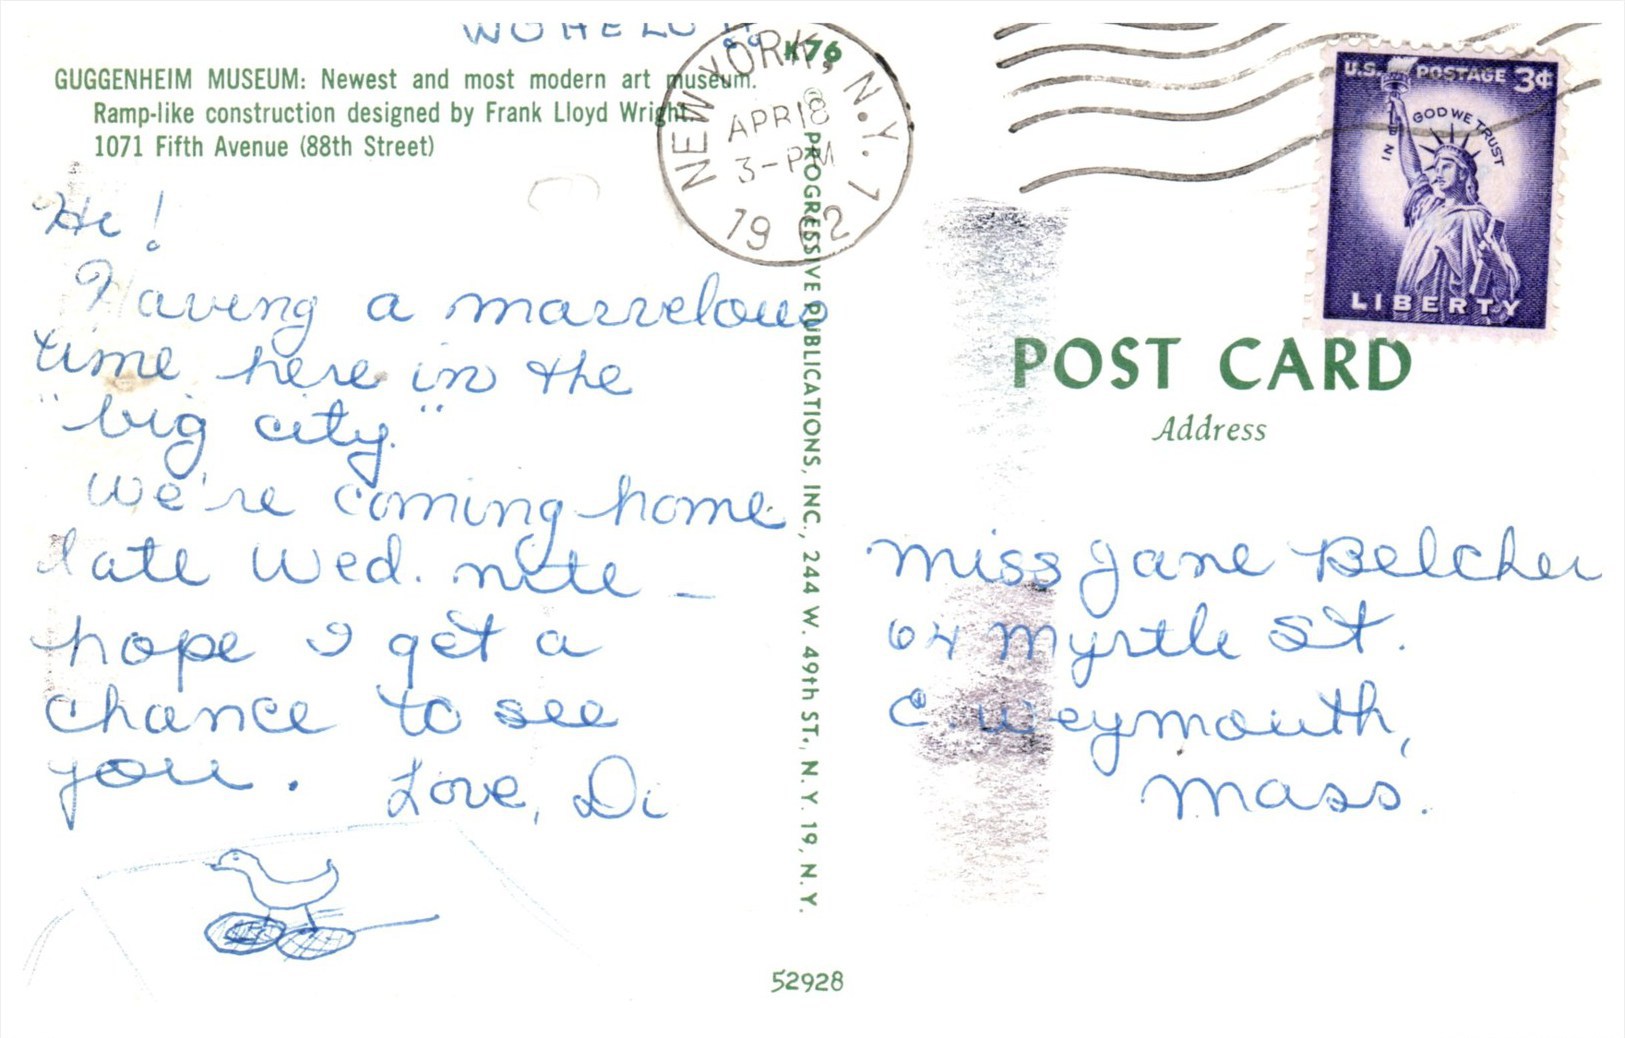 WOHELO!!
K76
GUGGENHEIM MUSEUM: Newest and most modern art museum.
Ramp-like construction designed by Frank Lloyd Wright.
1071 Fifth Avenue (88th Street)
Hi!
Having a marvelous
time here in the
"big city."
We're coming home
late Wed. nite -
hope I get a
chance to see
you. Love, Di
NEW YORK, N.Y. 1
APR 18
3-PM
1962
© PROGRESSIVE PUBLICATIONS, INC., 244 W. 49th ST., N. Y. 19, N. Y.
52928
U.S. POSTAGE 3¢
IN GOD WE TRUST
LIBERTY
POST CARD
Address
Miss Jane Belcher
64 Myrtle St.
E. Weymouth,
Mass.